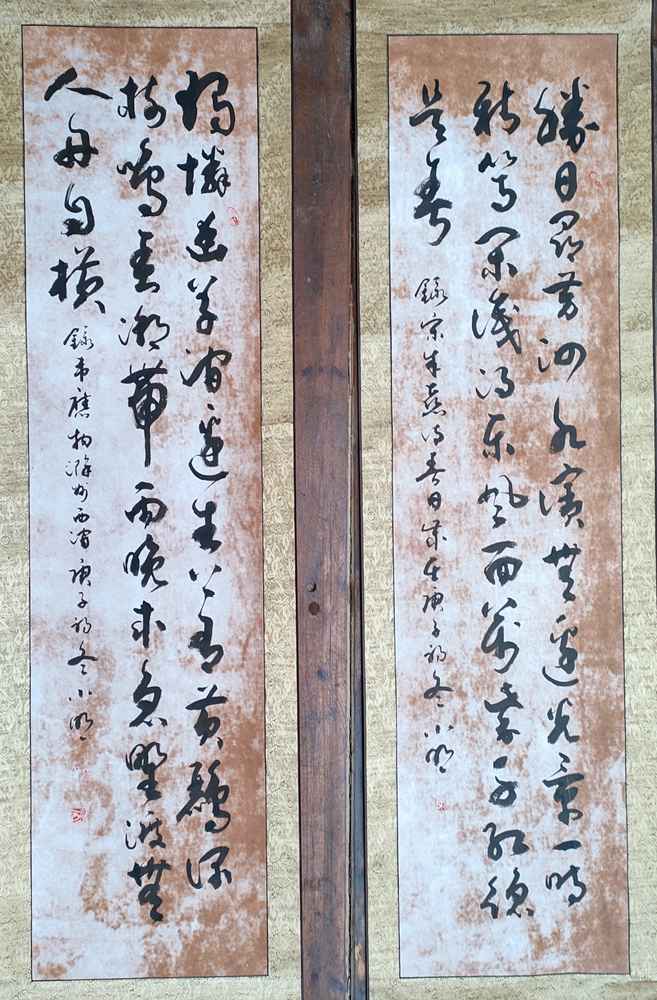 勝日尋芳泗水濱無邊光景一時
新等閑識得東風面萬紫千紅總
是春
錄宋朱熹詩春日歲在庚子初冬小明
獨憐幽草澗邊生上有黃鸝深
樹鳴春潮帶雨晚來急野渡無
人舟自橫
錄韋應物滁州西澗庚子初冬小明